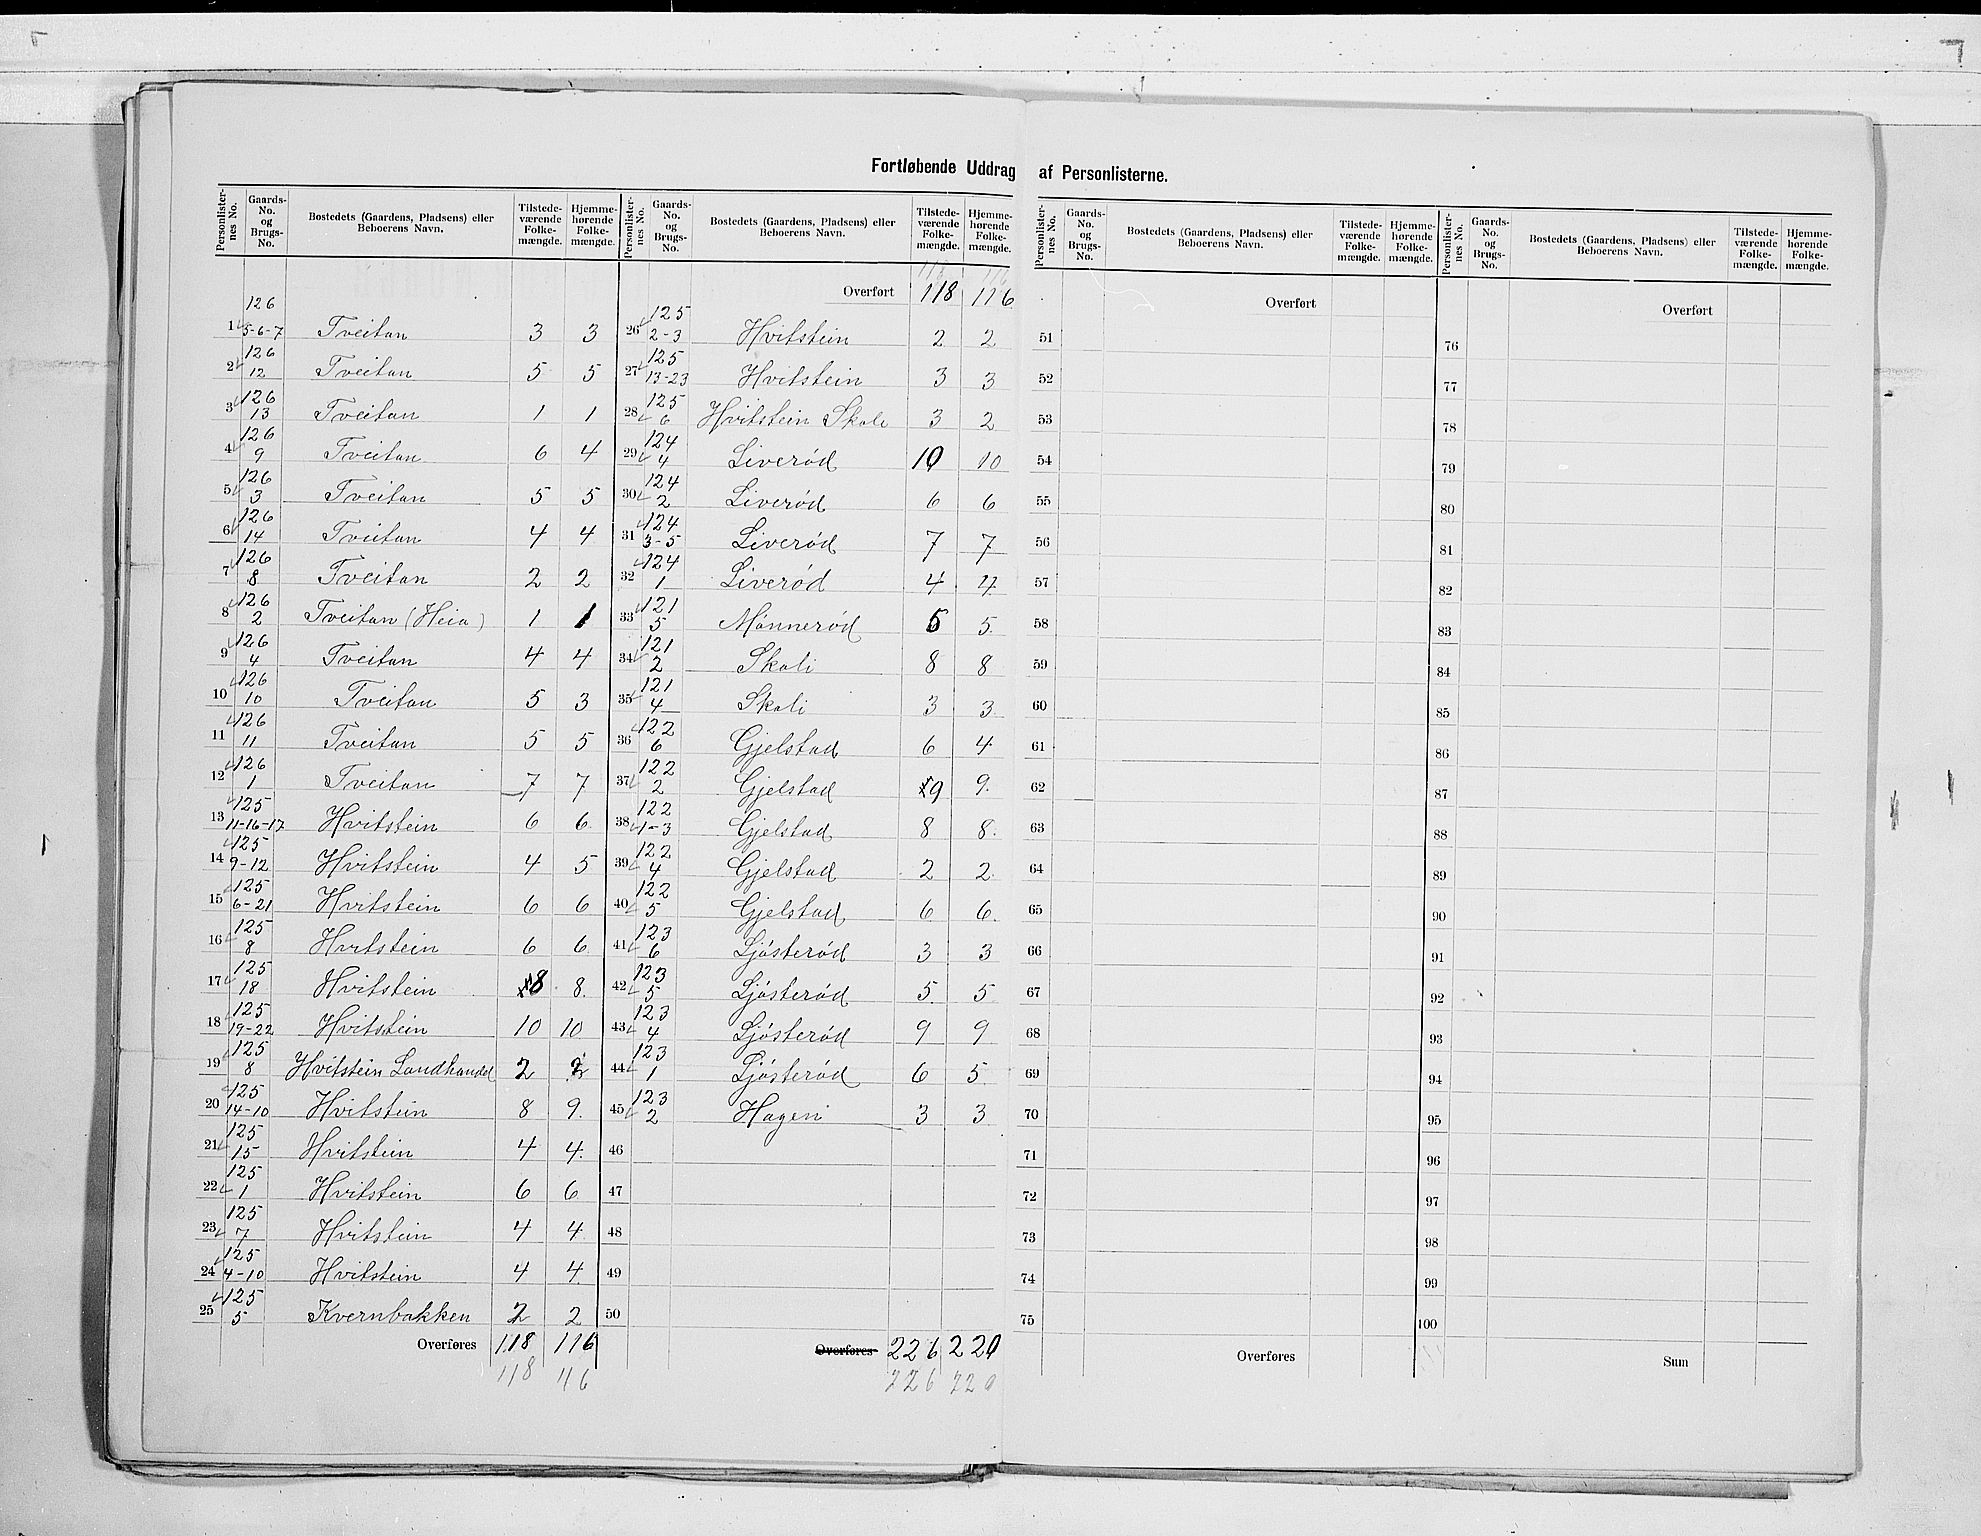 Fortløbende Uddrag af Personlisterne.
Personlister-nes No. | Gaards-No. og Brugs-No. | Bostedets (Gaardens, Pladsens) eller Beboerens Navn. | Tilstede-værende Folke-mængde. | Hjemme-hørende Folke-mængde.
1 | 126 5-6-7 | Tveitan | 3 | 3
2 | 126 12 | Tveitan | 5 | 5
3 | 126 13 | Tveitan | 1 | 1
4 | 126 9 | Tveitan | 6 | 4
5 | 126 3 | Tveitan | 5 | 5
6 | 126 14 | Tveitan | 4 | 4
7 | 126 8 | Tveitan | 2 | 2
8 | 126 2 | Tveitan (Heia) | 1 | 1
9 | 126 4 | Tveitan | 4 | 4
10 | 126 10 | Tveitan | 5 | 3
11 | 126 11 | Tveitan | 5 | 5
12 | 126 1 | Tveitan | 7 | 7
13 | 125 11-16-17 | Hvitstein | 6 | 6
14 | 125 9-12 | Hvitstein | 4 | 5
15 | 125 6-21 | Hvitstein | 6 | 6
16 | 125 8 | Hvitstein | 6 | 6
17 | 125 18 | Hvitstein | 8 | 8
18 | 125 19-22 | Hvitstein | 10 | 10
19 | 125 8 | Hvitstein Landhandel | 2 | 2
20 | 125 14-10 | Hvitstein | 8 | 9
21 | 125 15 | Hvitstein | 4 | 4
22 | 125 1 | Hvitstein | 6 | 6
23 | 125 7 | Hvitstein | 4 | 4
24 | 125 4-10 | Hvitstein | 4 | 4
25 | 125 5 | Kvernbakken | 2 | 2
Overføres 118 116
118 116
Personlister-nes No. | Gaards-No. og Brugs-No. | Bostedets (Gaardens, Pladsens) eller Beboerens Navn. | Tilstede-værende Folke-mængde. | Hjemme-hørende Folke-mængde.
118 116
Overført 118 116
26 | 125 2-3 | Hvitstein | 2 | 2
27 | 125 13-23 | Hvitstein | 3 | 3
28 | 125 6 | Hvitstein Skole | 3 | 2
29 | 124 4 | Liverød | 10 | 10
30 | 124 2 | Liverød | 6 | 6
31 | 124 3-5 | Liverød | 7 | 7
32 | 124 1 | Liverød | 4 | 4
33 | 121 5 | Mønnerød | 5 | 5
34 | 121 2 | Skali | 8 | 8
35 | 121 4 | Skali | 3 | 3
36 | 122 6 | Gjelstad | 6 | 4
37 | 122 2 | Gjelstad | 9 | 9
38 | 122 1-3 | Gjelstad | 8 | 8
39 | 122 4 | Gjelstad | 2 | 2
40 | 122 5 | Gjelstad | 6 | 6
41 | 123 6 | Ljøsterød | 3 | 3
42 | 123 5 | Ljøsterød | 5 | 5
43 | 123 4 | Ljøsterød | 9 | 9
44 | 123 1 | Ljøsterød | 6 | 5
45 | 123 2 | Hagen | 3 | 3
46
47
48
49
50
Overføres 226 220
226 220
Personlister-nes No. | Gaards-No. og Brugs-No. | Bostedets (Gaardens, Pladsens) eller Beboerens Navn. | Tilstede-værende Folke-mængde. | Hjemme-hørende Folke-mængde.
Overført
51
52
53
54
55
56
57
58
59
60
61
62
63
64
65
66
67
68
69
70
71
72
73
74
75
Overføres
Personlister-nes No. | Gaards-No. og Brugs-No. | Bostedets (Gaardens, Pladsens) eller Beboerens Navn. | Tilstede-værende Folke-mængde. | Hjemme-hørende Folke-mængde.
Overført
76
77
78
79
80
81
82
83
84
85
86
87
88
89
90
91
92
93
94
95
96
97
98
99
100
Sum